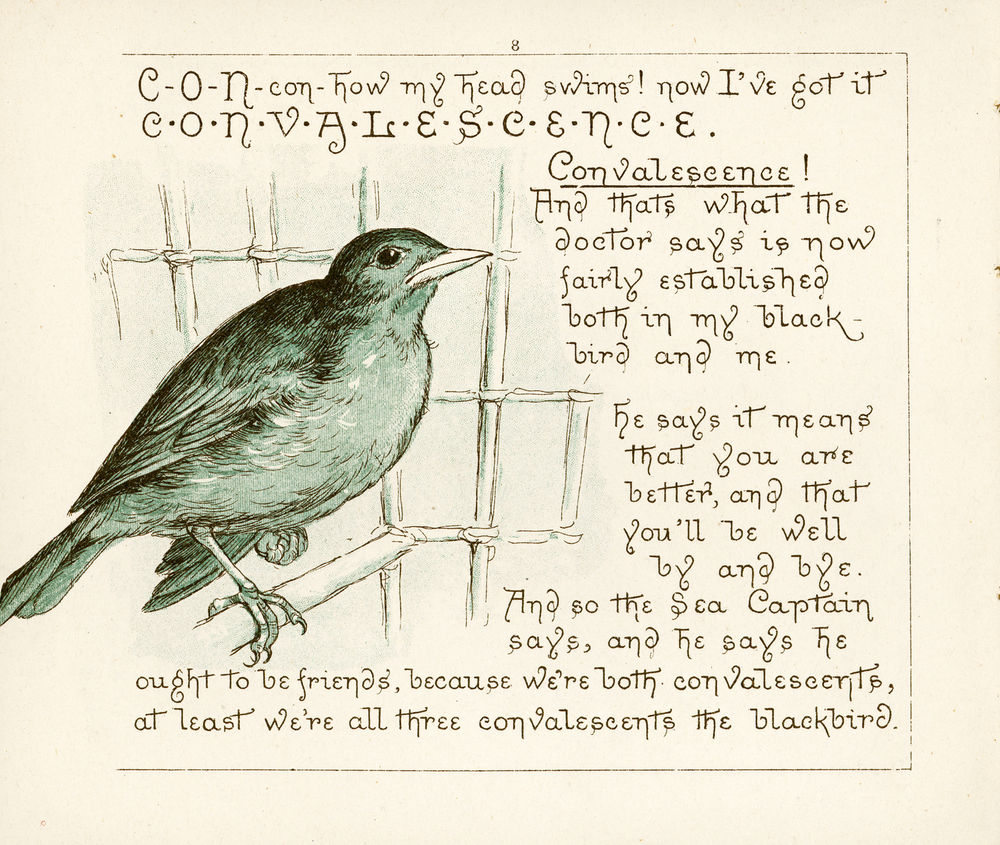 8
C-O-N-con-how my head swims! now I've got it
C·O·N·V·A·L·E·S·C·E·N·C·E.
Convalescence!
And thats what the
doctor says is now
fairly established
both in my black-
bird and me.
he says it means
that you are
better, and that
you'll be well
by and bye.
And so the Sea Captain
says, and he says he
ought to be friends, because we're both convalescents,
at least we're all three convalescents the blackbird.